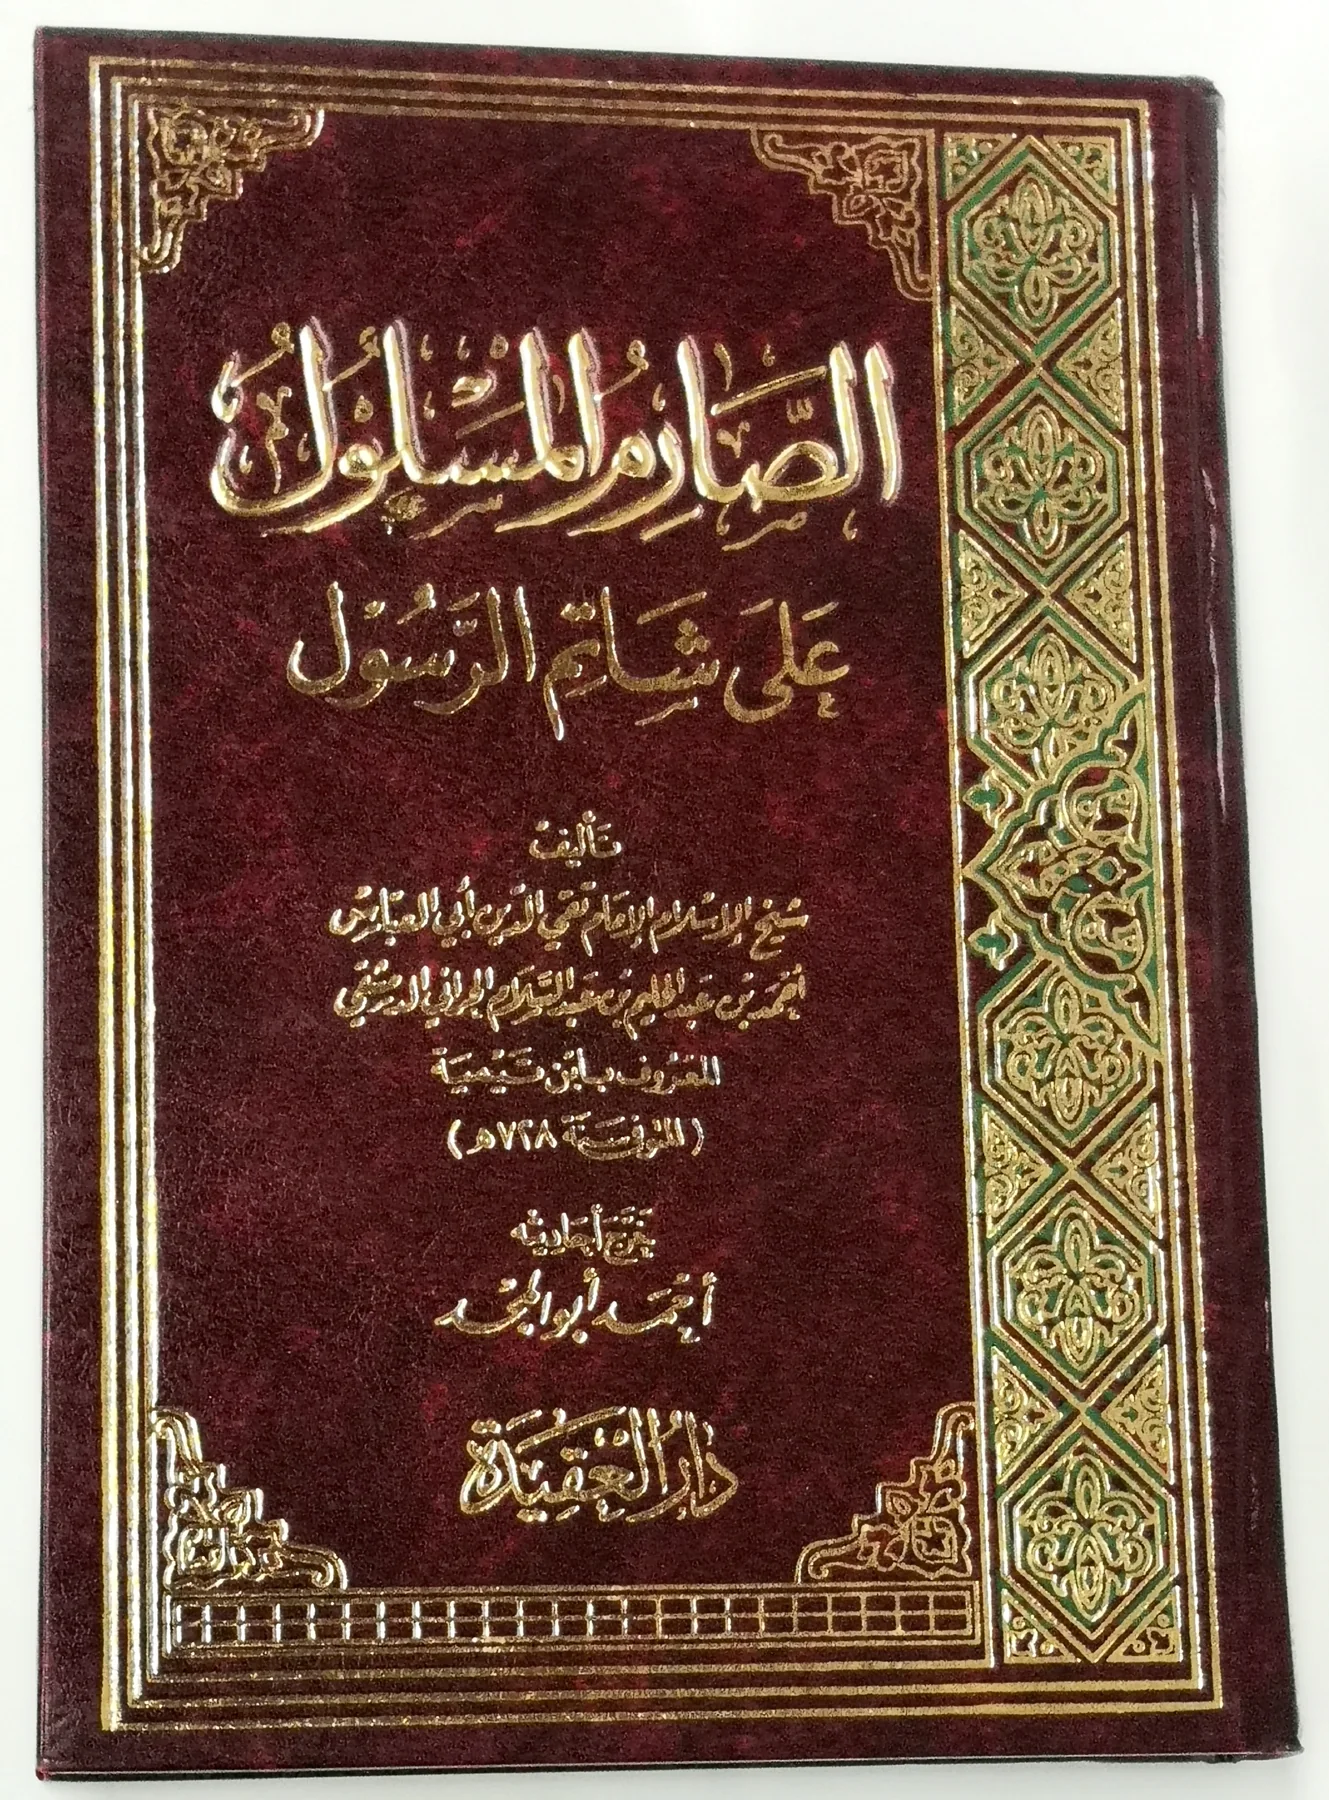 الصَّارِمُ المَسْلُولُ
عَلَى شَاتِمِ الرَّسُوْل
تَأليف
شيخ الإسلام الإمام تقي الدين أبي العباس
أحمد بن عبد الحليم بن عبد السلام الحراني الدمشقي
المعروف بابن تيمية
(المتوفى سنة ٧٢٨هـ)
خرج أحاديثه
أحمد أبو المجد
دار العقيدة